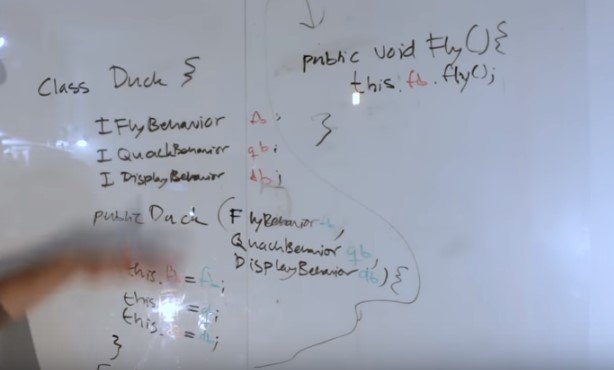 Class Duck {
IFlyBehavior fb;
IQuackBehavior qb;
IDisplayBehavior db;
public Duck (FlyBehavior fb,
QuackBehavior qb,
DisplayBehavior db) {
this.fb = fb;
this. = ;
this. = ;
}
public void Fly() {
this.fb.fly();
}